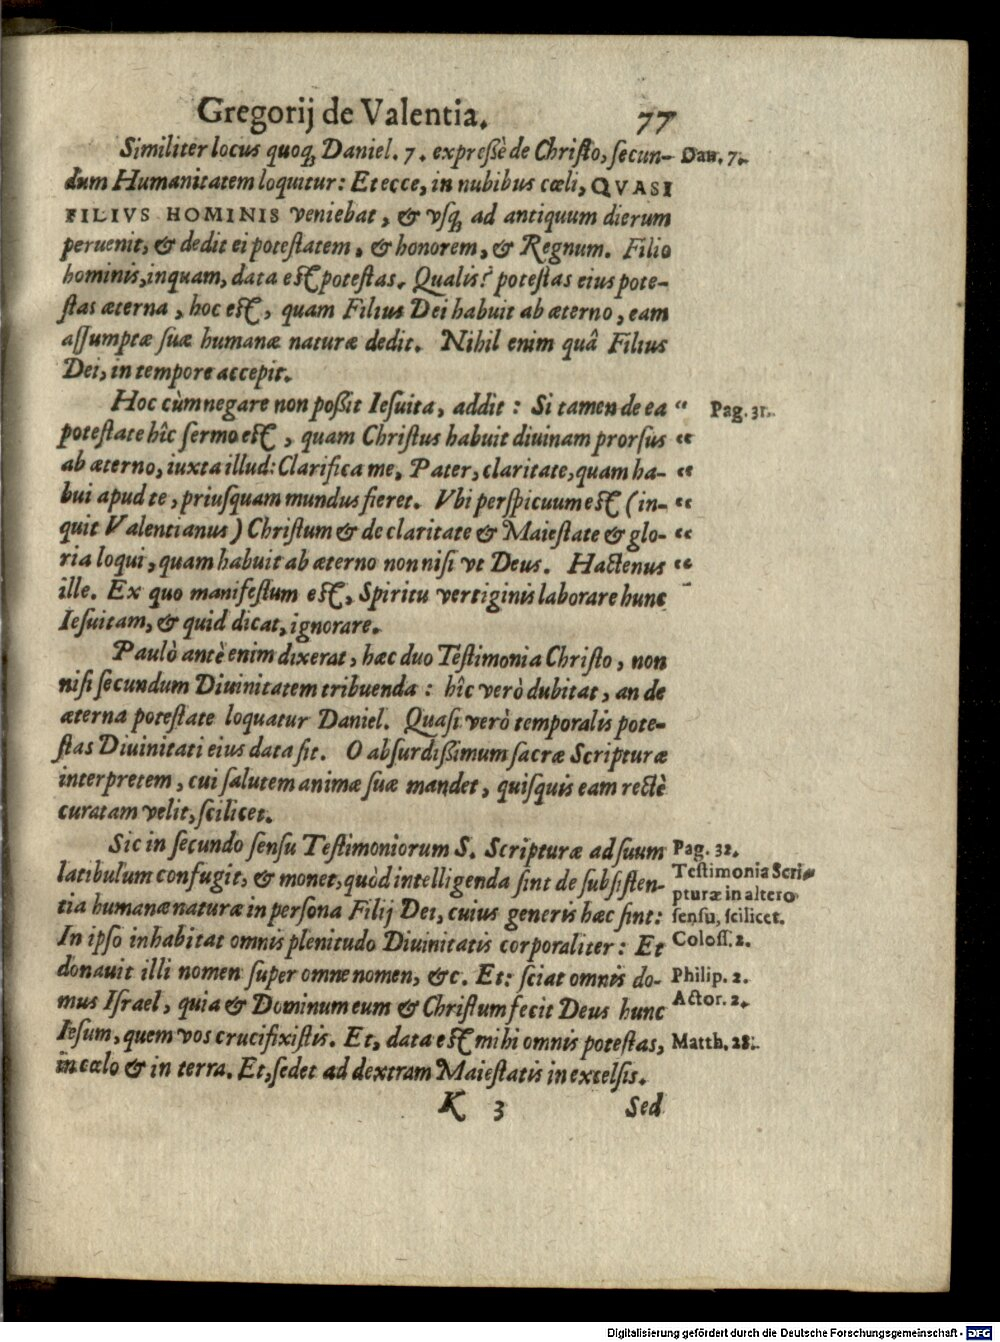 Gregorij de Valentia. 77
Similiter locus quoq; Daniel. 7. expreßè de Christo, secun- Dan. 7.
dum Humanitatem loquitur: Et ecce, in nubibus cœli, QVASI
FILIVS HOMINIS veniebat, & vsq; ad antiquum dierum
peruenit, & dedit ei potestatem, & honorem, & Regnum. Filio
hominis, inquam, data est potestas. Qualis? potestas eius pote-
stas æterna, hoc est, quam Filius Dei habuit ab æterno, eam
assumptæ suæ humanæ naturæ dedit. Nihil enim quâ Filius
Dei, in tempore accepit.
Hoc cùm negare non poßit Iesuita, addit: Si tamen de ea “ Pag. 31.
potestate hîc sermo est, quam Christus habuit diuinam prorsus “
ab æterno, iuxta illud: Clarifica me, Pater, claritate, quam ha- “
bui apud te, priusquam mundus fieret. Vbi perspicuum est (in- “
quit Valentianus) Christum & de claritate & Maiestate & glo- “
ria loqui, quam habuit ab æterno non nisi vt Deus. Hactenus “
ille. Ex quo manifestum est, Spiritu vertiginis laborare hunc
Iesuitam, & quid dicat, ignorare.
Paulò antè enim dixerat, hæc duo Testimonia Christo, non
nisi secundum Diuinitatem tribuenda: hîc verò dubitat, an de
æterna potestate loquatur Daniel. Quasi verò temporalis pote-
stas Diuinitati eius data sit. O absurdißimum sacræ Scripturæ
interpretem, cui salutem animæ suæ mandet, quisquis eam rectè
curatam velit, scilicet.
Sic in secundo sensu Testimoniorum S. Scripturæ ad suum Pag. 32.
latibulum confugit, & monet, quòd intelligenda sint de subsisten- Testimonia Scri-
pturæ in altero
tia humanæ naturæ in persona Filij Dei, cuius generis hæc sint: sensu, scilicet.
In ipso inhabitat omnis plenitudo Diuinitatis corporaliter: Et Coloss. 2.
donauit illi nomen super omne nomen, &c. Et: sciat omnis do- Philip. 2.
mus Israel, quia & Dominum eum & Christum fecit Deus hunc Actor. 2.
Iesum, quem vos crucifixistis. Et, data est mihi omnis potestas, Matth. 28.
in cœlo & in terra. Et, sedet ad dextram Maiestatis in excelsis.
K 3 Sed
Digitalisierung gefördert durch die Deutsche Forschungsgemeinschaft - DFG